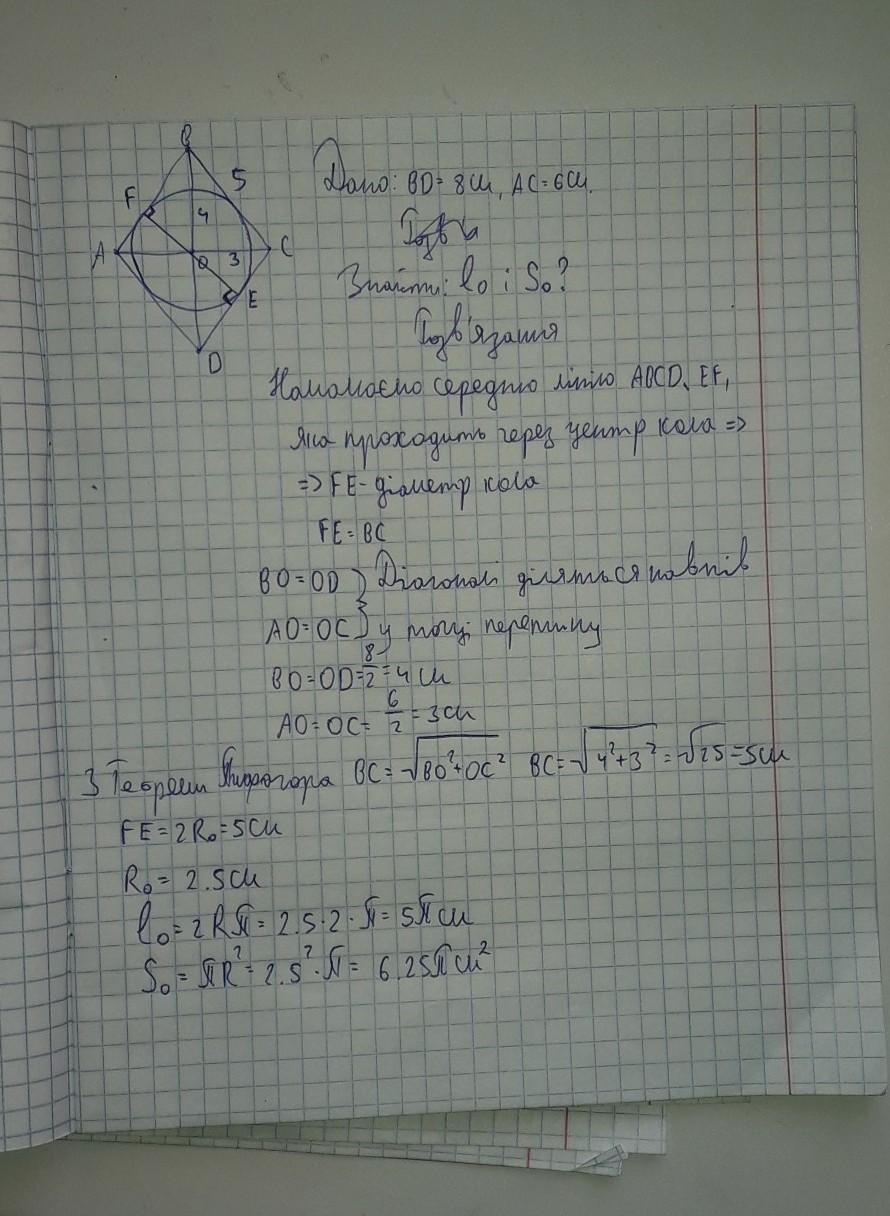 B
F
5
4
A
O
3
C
E
D
Дано: BD= 8см, AC=6см.
Знайти: lo і So?
Розв'язання
Намалюємо середню лінію ABCD, EF,
яка проходить через центр кола =>
=> FE-діаметр кола
FE=BC
BO=OD } Діагоналі діляться навпів
AO=OC } у точці перетину
BO=OD=8/2=4см
AO=OC=6/2=3см
З Теореми Пифагора BC=√BO²+OC² BC=√4²+3²=√25=5см
FE=2Ro=5см
Ro= 2.5см
lo=2Rπ=2.5·2·π=5πсм
So=πR²=2.5²·π= 6.25πсм²